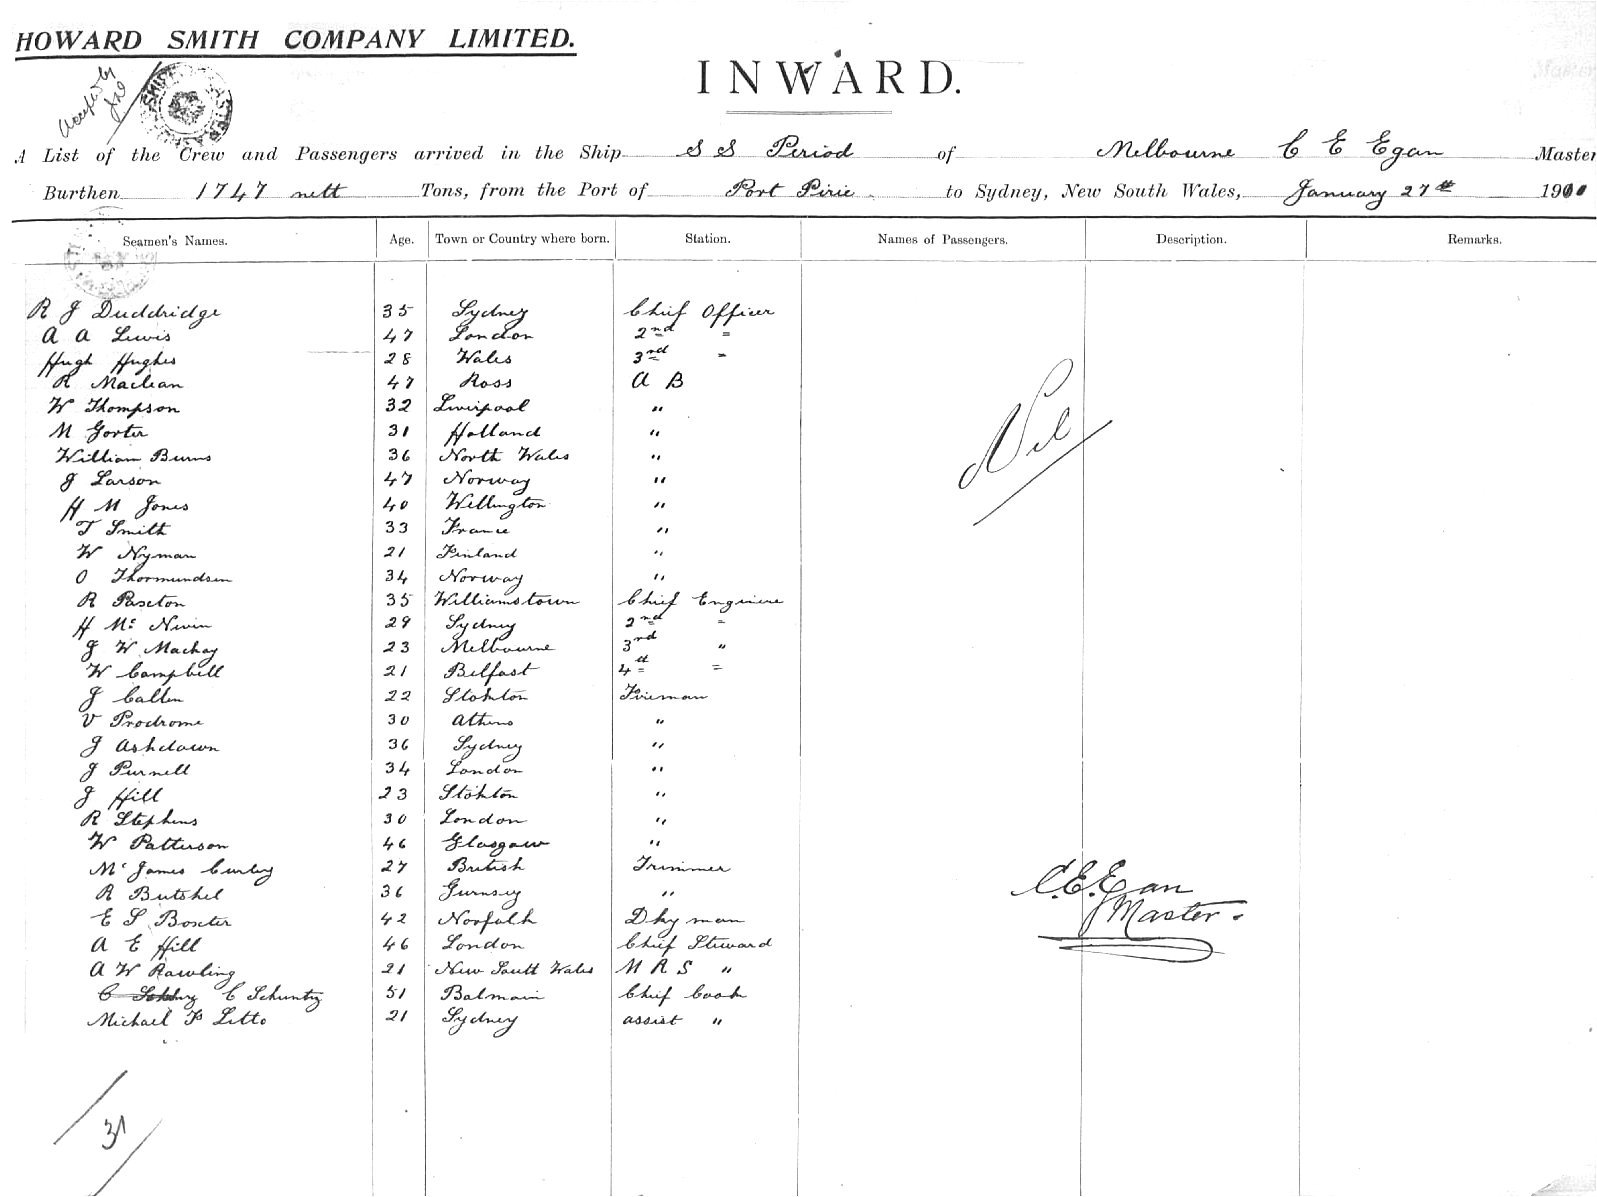 HOWARD SMITH COMPANY LIMITED.
Accepted by
INWARD.
A List of the Crew and Passengers arrived in the Ship S S Period of Melbourne C E Egan Master
Burthen 1747 nett Tons, from the Port of Port Pirie to Sydney, New South Wales, January 27th 1910
Seamen's Names. Age. Town or Country where born. Station. Names of Passengers. Description. Remarks.
R J Duddridge 35 Sydney Chief Officer
A A Lewis 47 London 2nd "
Hugh Hughes 28 Wales 3rd "
R Maclean 47 Ross A B
W Thompson 32 Liverpool "
M Gorter 31 Holland "
William Burns 36 North Wales "
J Larson 47 Norway "
H M Jones 40 Wellington "
T Smith 33 France "
W Nyman 21 Finland "
O Thormundsen 34 Norway "
R Paxton 35 Williamstown Chief Engineer
H Mc Nivin 29 Sydney 2nd "
J W Mackay 23 Melbourne 3rd "
W Campbell 21 Belfast 4th "
J Callen 22 Stokton Fireman
V Prodrome 30 Athens "
J Ashdown 36 Sydney "
J Purnell 34 London "
J Hill 23 Stokton "
R Stephens 30 London "
W Patterson 46 Glasgow "
Mc James Curley 27 British Trimmer
R Butshel 36 Gurnsey "
E S Boxter 42 Norfolk Dky man
A E Hill 46 London Chief Steward
A W Rawling 21 New South Wales M R S "
C Schuntz 51 Balmain Chief Cook
Michael F Litto 21 Sydney assist "
Nil
C. E. Egan
Master.
31